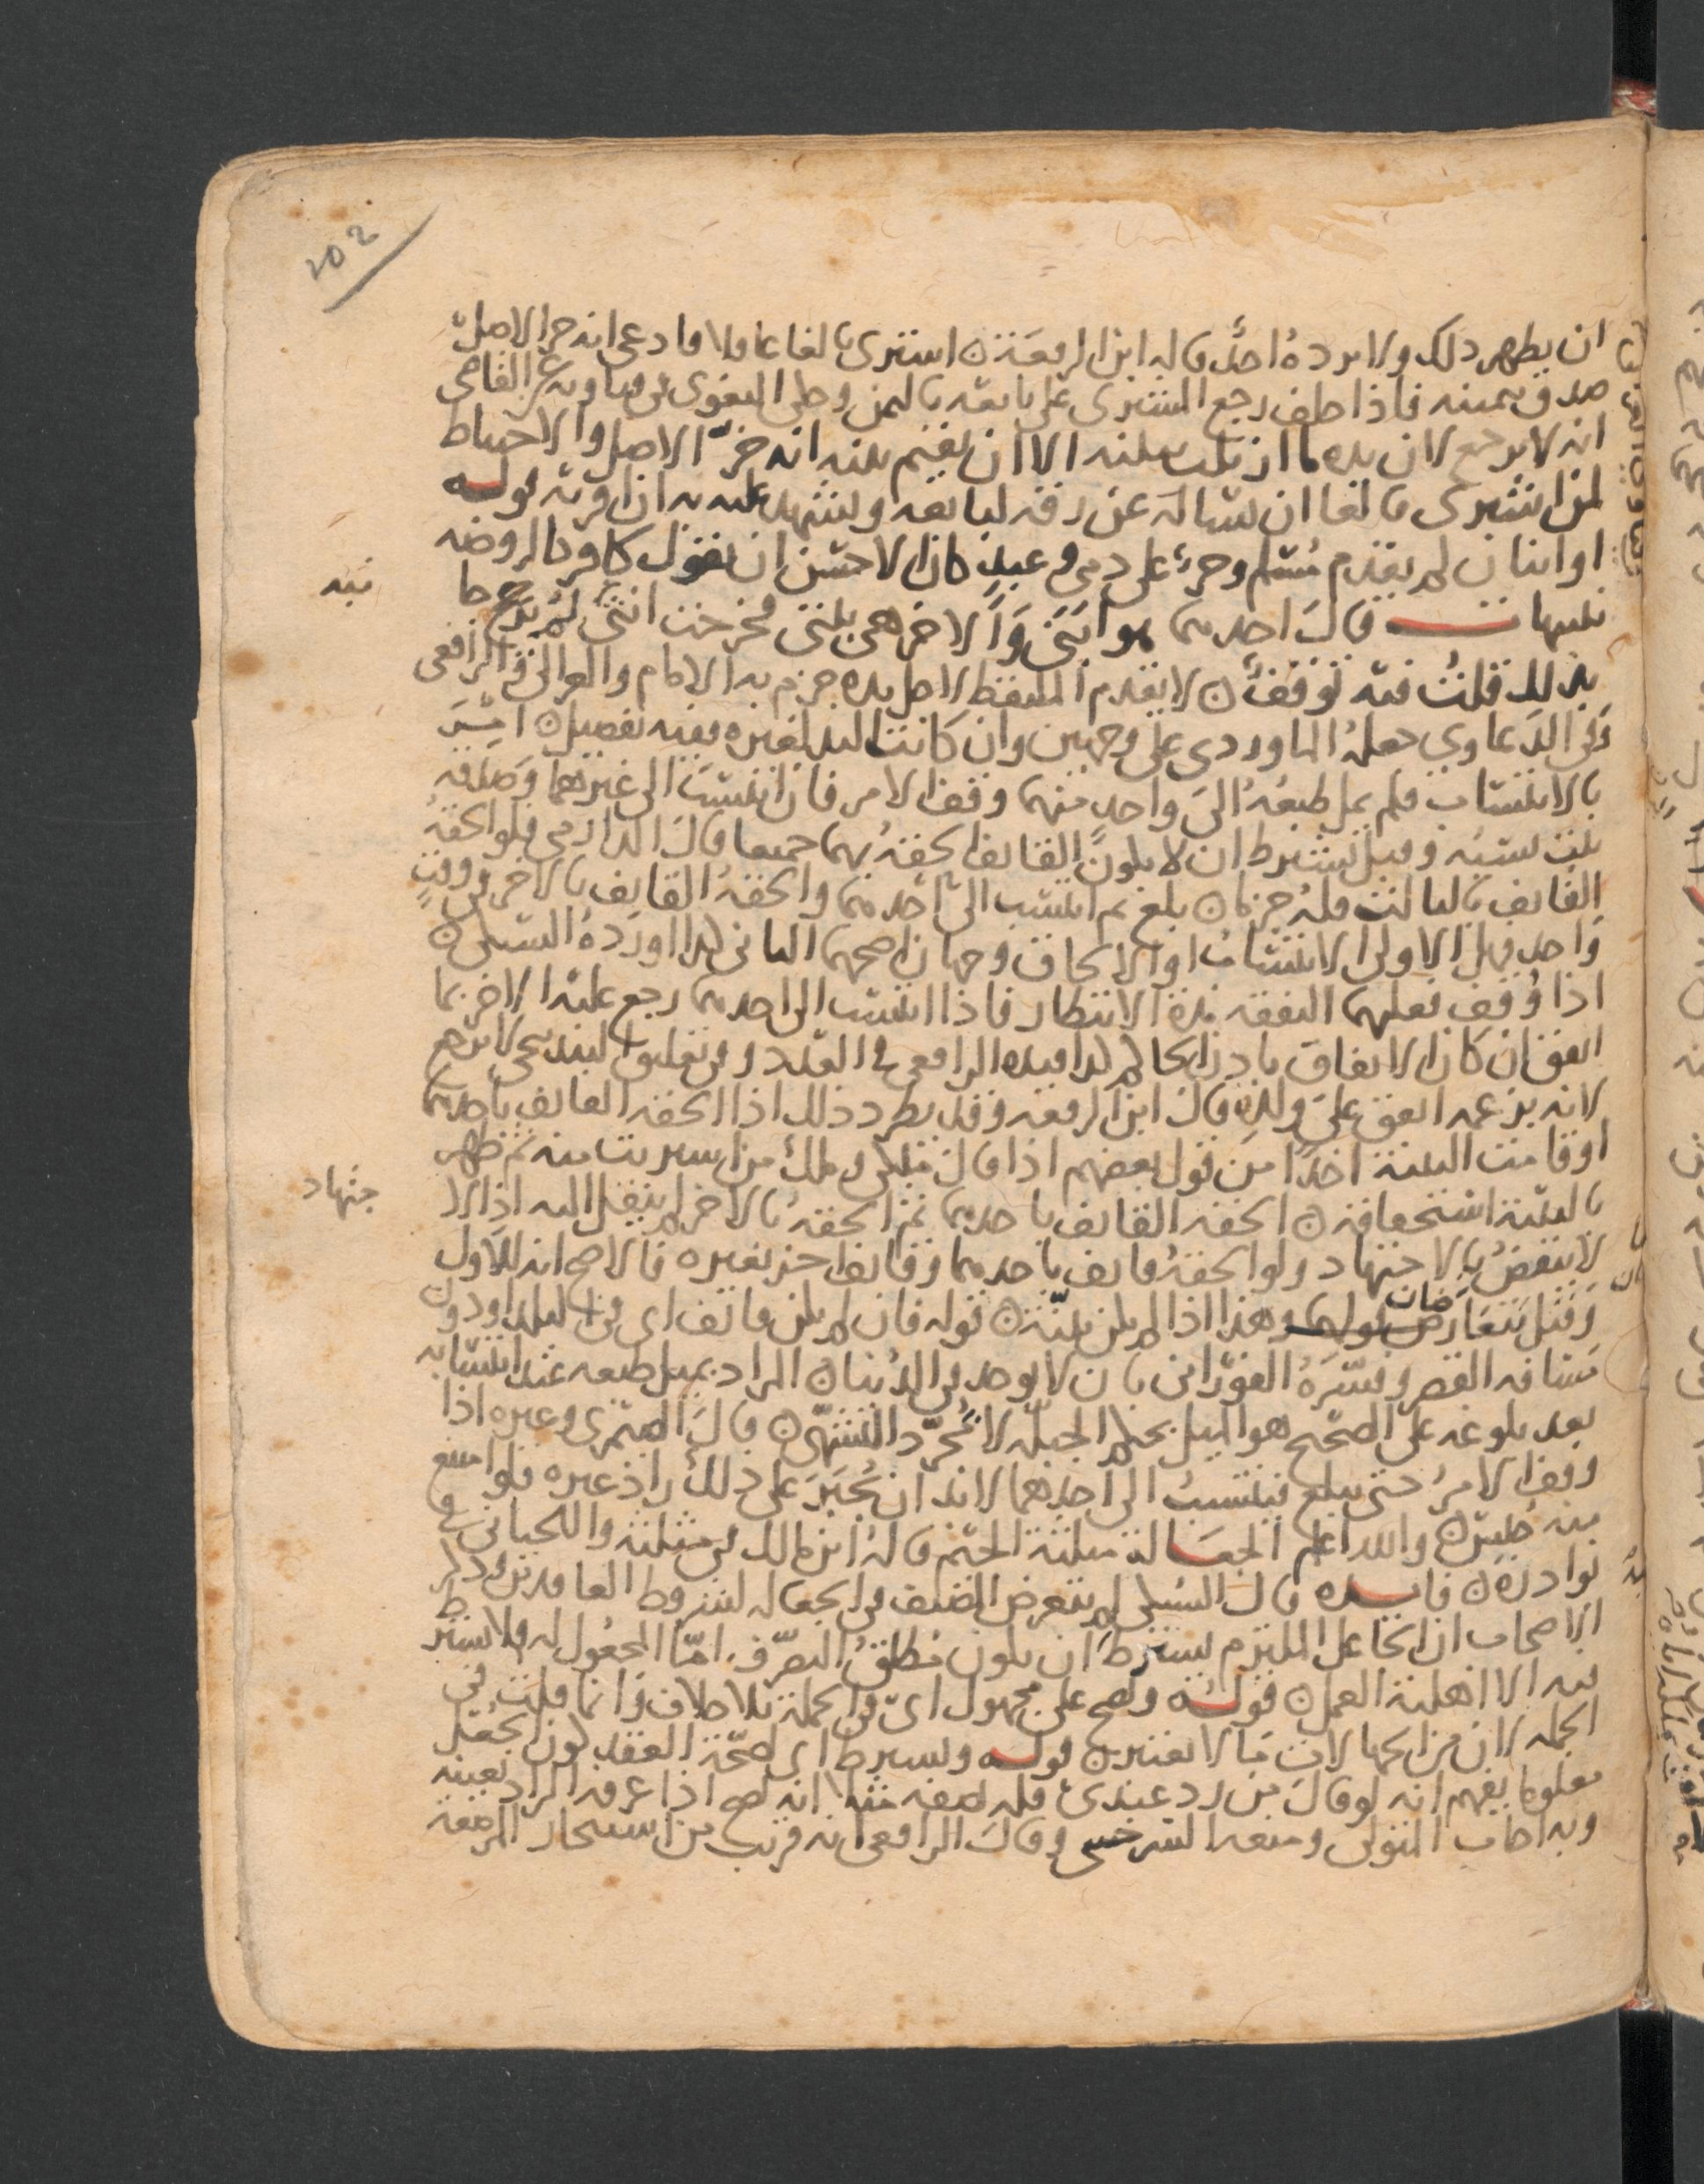 102
ان يظهر ذلك ولا يرده احد قاله ابن الرفعة ن اشترى بالغا عاقلا فادعى انه حر الاصل
صدق بيمينه فاذا حلف رجع المشترى على بايعه بالثمن وحكى البغوى فى فتاويه عن القاضى
انه لا يرجع لان يده ما ازيلت ببينة الا ان يقيم بينة انه حر الاصل والاحتياط
لمن اشترى بالغا ان يساله عن رقه لبايعه ويشهد عليه به ان اقر به قوله
او اثنان لم يقدم مسلم وحر على ذمى وعبد كان الاحسن ان يقول كافر كالروضه
تنبيهات قال احدهما هو ابنى والاخر هى بنتى فخرجت انثى لم يرجح ما
بذلك قلت فيه توقف ن لا يقدم الملتقط لاصل يده جزم به الامام والغزالى والرافعى
وفى الدعاوى جعله الماوردى على وجهين وان كانت اليد لغيره ففيه تفصيل ن امر
بالانتساب فلم يمل طبعه الى واحد منهما وقف الامر فان انتسب الى غيرهما وصدقه
ثبت نسبه وقيل يشترط ان لا يكون القائف الحقه بهما جميعا قال الدارمى فلو الحقه
القايف بالثالث فله حر ن بلغ ثم انتسب الى احدهما والحقه القايف بالاخر فى وقت
واحد فهل الاولى الانتساب او الالحاق وجهان اصحهما الثانى كذا اورده السبكى ن
اذا وقف فعليهما النفقه مدة الانتظار فاذا انتسب الى احدهما رجع عليه الاخر بما
انفق ان كان الانفاق باذن الحاكم كذا قيده الرافعى فى العدد وفى تعليق البندنيجى لا يرجع
لانه بزعمه انفق على ولده قال ابن الرفعه وقد يطرد ذلك اذا الحقه القايف باحدهما
او قامت البينة اخذا من قول بعضهم اذا قال ملكى وملك من اشتريت منه ثم ظهر
بالبينة استحقاقه ن الحقه القائف باحدهما ثم الحقه بالاخر لم ينقل اليه اذ الا
جتهاد
لا ينقض بالاجتهاد ولو الحقه قايف باحدهما وقائف اخر بغيره فالاصح انه للاول
وقيل يتعارضان وهذا اذا لم يكن بينة ن قوله فان لم يكن قائف اى فى البلد او دون
مسافه القصر وفسره الفورانى بان لا يوجد فى الدنيا ن المراد بميل طبعه عند انتسابه
بعد بلوغه على الصحيح هو الميل بحكم الجبلة لا مجرد التشهى ن قال الصيمرى وغيره اذا
وقف الامر حتى يبلغ فينتسب الى احدهما لابد ان يخبر على ذلك اذ غيره فلو امتنع
منه حبس ن والله اعلم الجعالة مثلثة الجيم قاله ابن مالك فى مثلثه واللحيانى فى
نوادره ن فائده قال السبكى لم يتعرض المصنف فى الجعاله لشروط العاقدين وذكر
الاصحاب ان الجاعل الملتزم يشترط ان يكون مطلق التصرف اما المجعول له فلا يشترط
فيه الا اهلية العمل ن قوله ويصح على مجهول اى فى الجملة بلا خلاف وانما قلت فى
الجمله لان من الجهالات ما لا يعتبر ن قوله ويشترط اى لصحة العقد كون الجعل
معلوما يفهم انه لو قال من رد عبدى فله نصفه مثلا انه يصح اذا عرفه الراد بعينه
وبه اجاب المتولى ومنعه السرخسى وقال الرافعى انه قريب من استيجار المرضعة